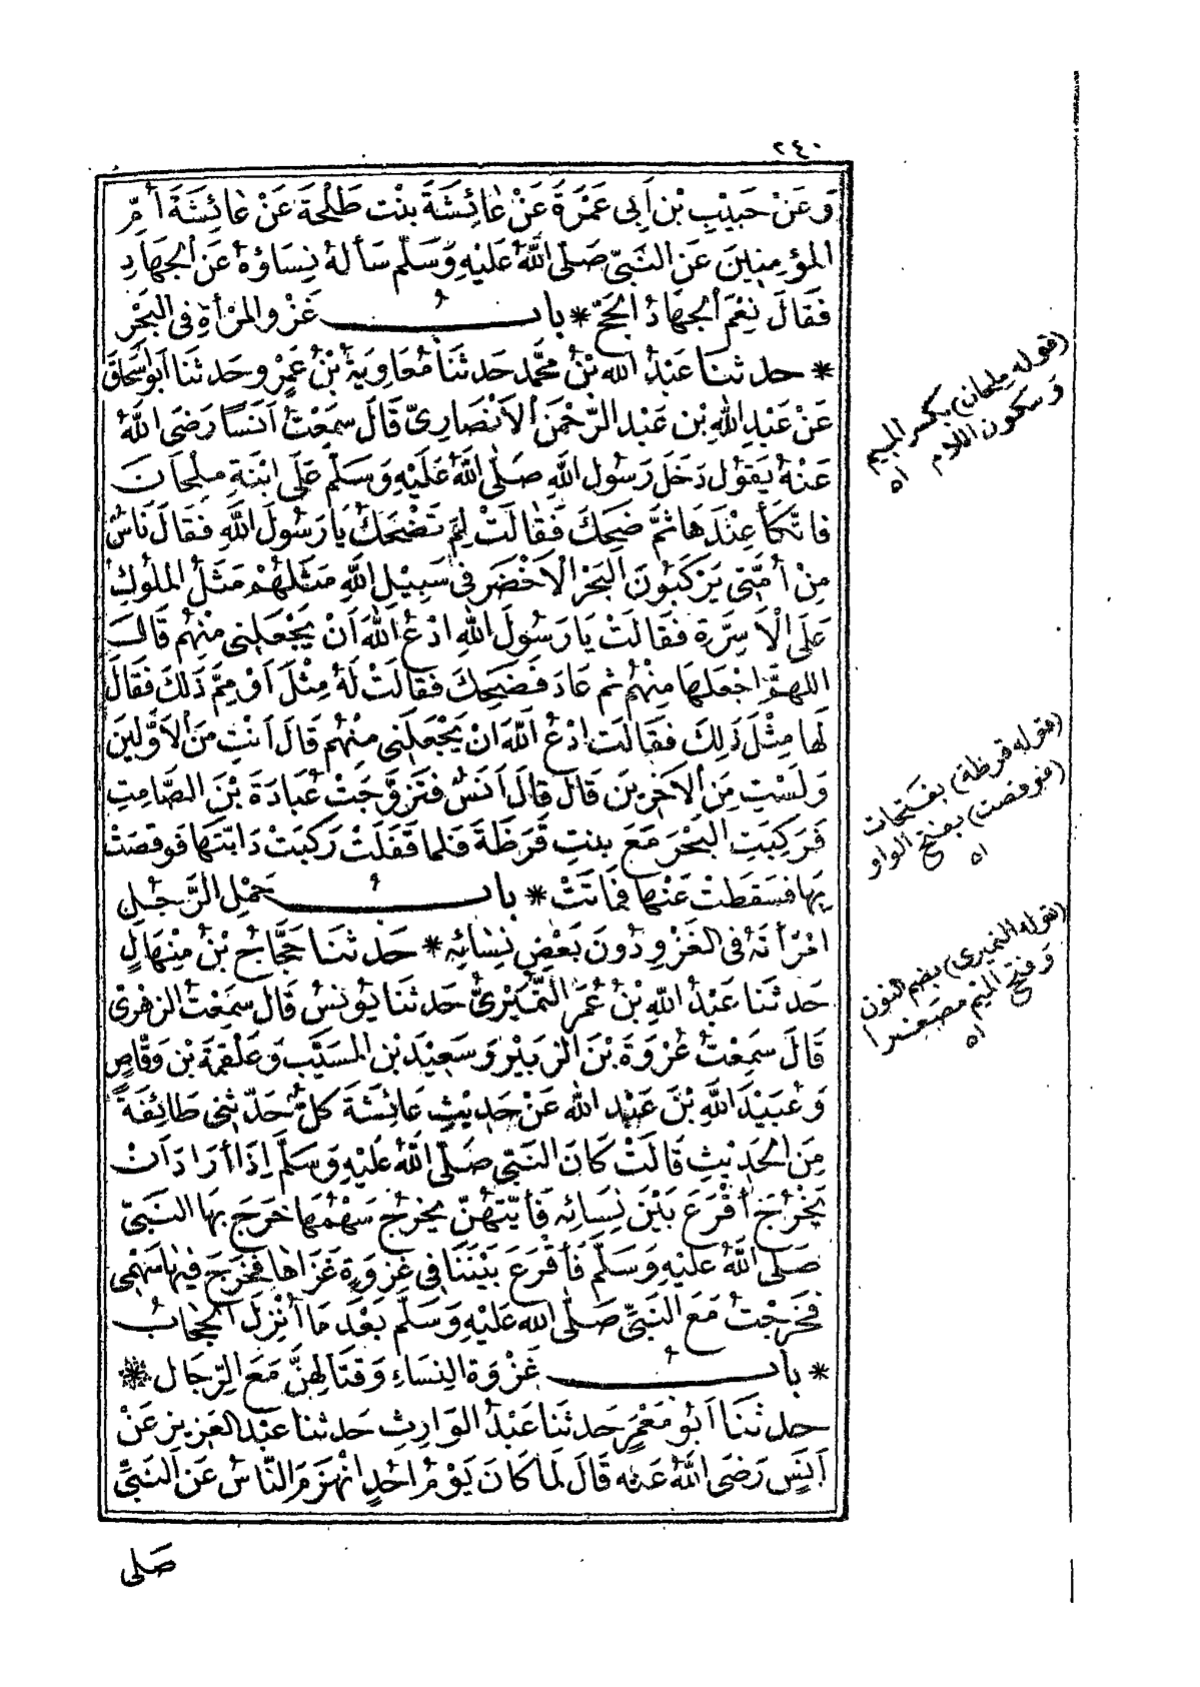 ٢٤٠
وَعَنْ حَبِيبِ بْنِ أَبِي عَمْرَةَ عَنْ عَائِشَةَ بِنْتِ طَلْحَةَ عَنْ عَائِشَةَ أُمِّ
المُؤْمِنِينَ عَنِ النَّبِيِّ صَلَّى اللَّهُ عَلَيْهِ وَسَلَّمَ سَأَلَهُ نِسَاؤُهُ عَنِ الْجِهَادِ
فَقَالَ نِعْمَ الْجِهَادُ الْحَجُّ * بابُ غَزْوِ المَرْأَةِ فِي البَحْرِ
* حدثنا عَبْدُ اللهِ بْنُ مُحَمَّدٍ حَدثَنَا مُعَاوِيَةُ بْنُ عَمْرٍو حَدثَنَا أَبُو إِسْحَاقَ
عَنْ عَبْدِ اللهِ بْنِ عَبْدِ الرَّحْمَنِ الأَنْصَارِيِّ قَالَ سَمِعْتُ أَنَسًا رَضِيَ اللَّهُ
عَنْهُ يَقُولُ دَخَلَ رَسُولُ اللَّهِ صَلَّى اللَّهُ عَلَيْهِ وَسَلَّمَ عَلَى ابْنَةِ مِلْحَانَ
فَاتَّكَأَ عِنْدَهَا ثُمَّ ضَحِكَ فَقَالَتْ لِمَ تَضْحَكُ يَا رَسُولَ اللَّهِ فَقَالَ نَاسٌ
مِنْ أُمَّتِي يَرْكَبُونَ البَحْرَ الأَخْضَرَ فِي سَبِيلِ اللَّهِ مَثَلُهُمْ مَثَلُ المُلُوكِ
عَلَى الأَسِرَّةِ فَقَالَتْ يَا رَسُولَ اللهِ ادْعُ اللَّهَ أَنْ يَجْعَلَنِي مِنْهُمْ قَالَ
اللهُمَّ اجْعَلْهَا مِنْهُمْ ثُمَّ عَادَ فَضَحِكَ فَقَالَتْ لَهُ مِثْلَ أَوْ مِمَّ ذَلِكَ فَقَالَ
لَهَا مِثْلَ ذَلِكَ فَقَالَت ادْعُ اللَّهَ أَنْ يَجْعَلَنِي مِنْهُمْ قَالَ أَنْتِ مِنَ الأَوَّلِينَ
وَلَسْتِ مِنَ الآخِرِينَ قَالَ قَالَ أَنَسٌ فَتَزَوَّجَتْ عُبَادَةَ بْنَ الصَّامِتِ
فَرَكِبَتِ البَحْرَ مَعَ بِنْتِ قَرَظَةَ فَلَمَا قَفَلَتْ رَكِبَتْ دَابَّتَهَا فَوَقَصَتْ
بِهَا فَسَقَطَتْ عَنْهَا فَمَاتَتْ * بابُ حَمْلِ الرَّجُلِ
امْرَأَتَهُ فِي الغَزْوِ دُونَ بَعْضِ نِسَائِهِ * حَدثنَا حَجَّاجُ بْنُ مِنْهَالٍ
حَدثَنَا عَبْدُ اللَّهِ بْنُ عُمَرَ النُّمَيْرِيُّ حَدثَنَا يُونُسُ قَالَ سَمِعْتُ الزُهْرِيَّ
قَالَ سَمِعْتُ عُرْوَةَ بْنَ الزُّبَيْرِ وَسَعِيدَ بْنَ المُسَيَّبِ وَعَلْقَمَةَ بْنَ وَقَّاصٍ
وَعُبَيْدَ اللَّهِ بْنَ عَبْدِ اللَّهِ عَنْ حَدِيثِ عَائِشَةَ كُلٌّ حَدَّثَنِي طَائِفَةً
مِنَ الحَدِيثِ قَالَتْ كَانَ النَّبِيُّ صَلَّى اللَّهُ عَلَيْهِ وَسَلَّمَ إِذَا أَرَادَ أَنْ
يَخْرُجَ أَقْرَعَ بَيْنَ نِسَائِهِ فَأَيَّتُهُنَّ يَخْرُجُ سَهْمُهَا خَرَجَ بِهَا النَّبِيُّ
صَلَّى اللَّهُ عَلَيْهِ وَسَلَّمَ فَأَقْرَعَ بَيْنَنَا فِي غَزْوَةٍ غَزَاهَا فَخَرَجَ فِيهَا سَهْمِي
فَخَرَجْتُ مَعَ النَّبِيِّ صَلَّى اللهُ عَلَيْهِ وَسَلَّمَ بَعْدَ مَا أُنْزِلَ الْحِجَابُ
* بابُ غَزْوَةِ النِسَاءِ وَقِتَالِهِنَّ مَعَ الرِّجَالِ *
حدثَنَا أَبُو مَعْمَرٍ حَدثَنَا عَبْدُ الوَارِثِ حَدثنا عَبْدُ العَزِيزِ عَنْ
أَنَسٍ رَضِيَ اللَّهُ عَنه قَالَ لَمَا كَانَ يَوْمُ أُحُدٍ انْهَزَمَ النَّاسُ عَنِ النَّبِيِّ
صَلى
(قوله ملحان) بكسر الميم
وسكون اللام
اه
(قوله قرظة) بفتحات
(فوقصت) بفتح الواو
اه
(قوله النميرى) بضم النون
وفتح الميم مصغرا
اه